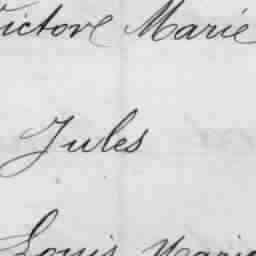 Victore Marie
Jules
Louis Marie